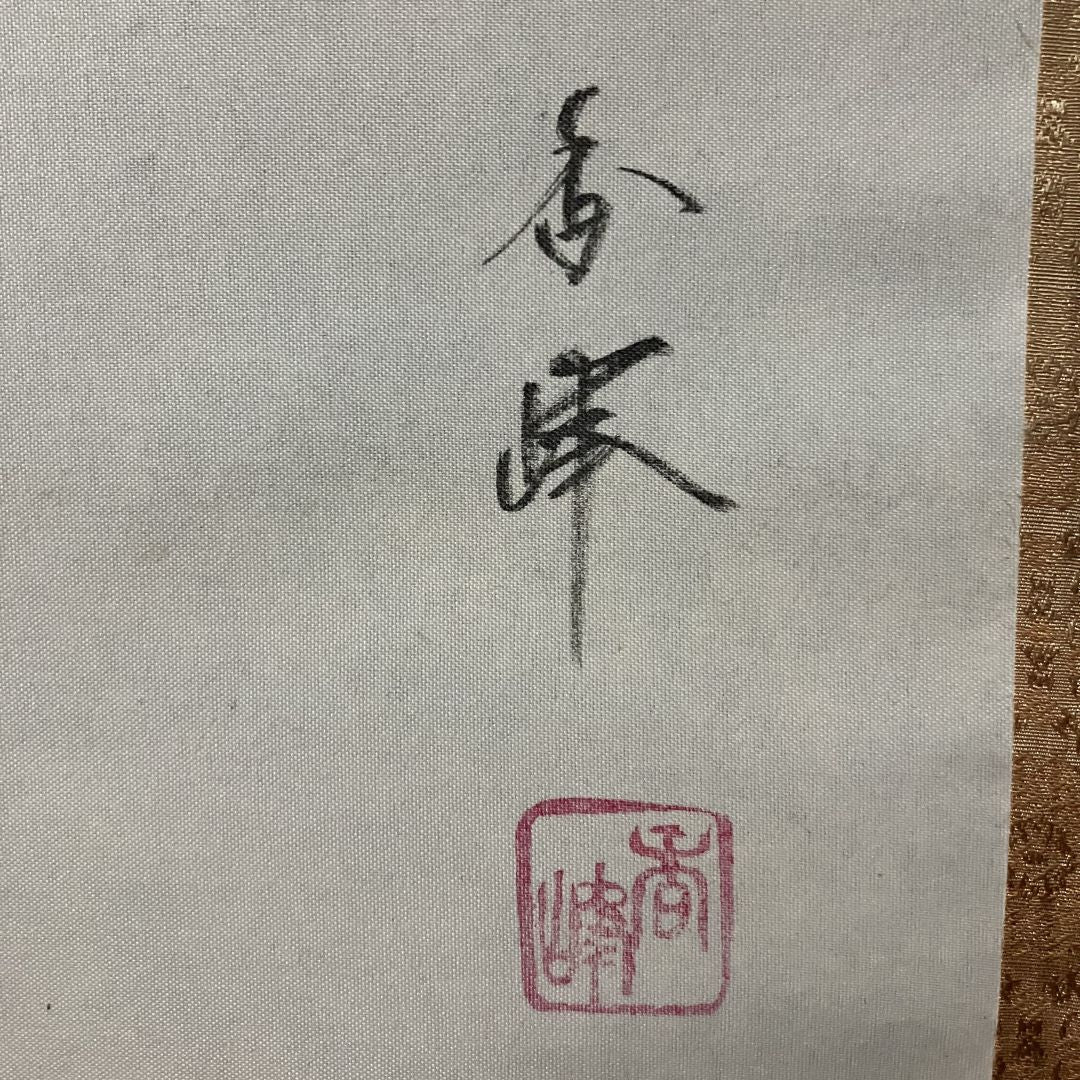 香峰
香
峰